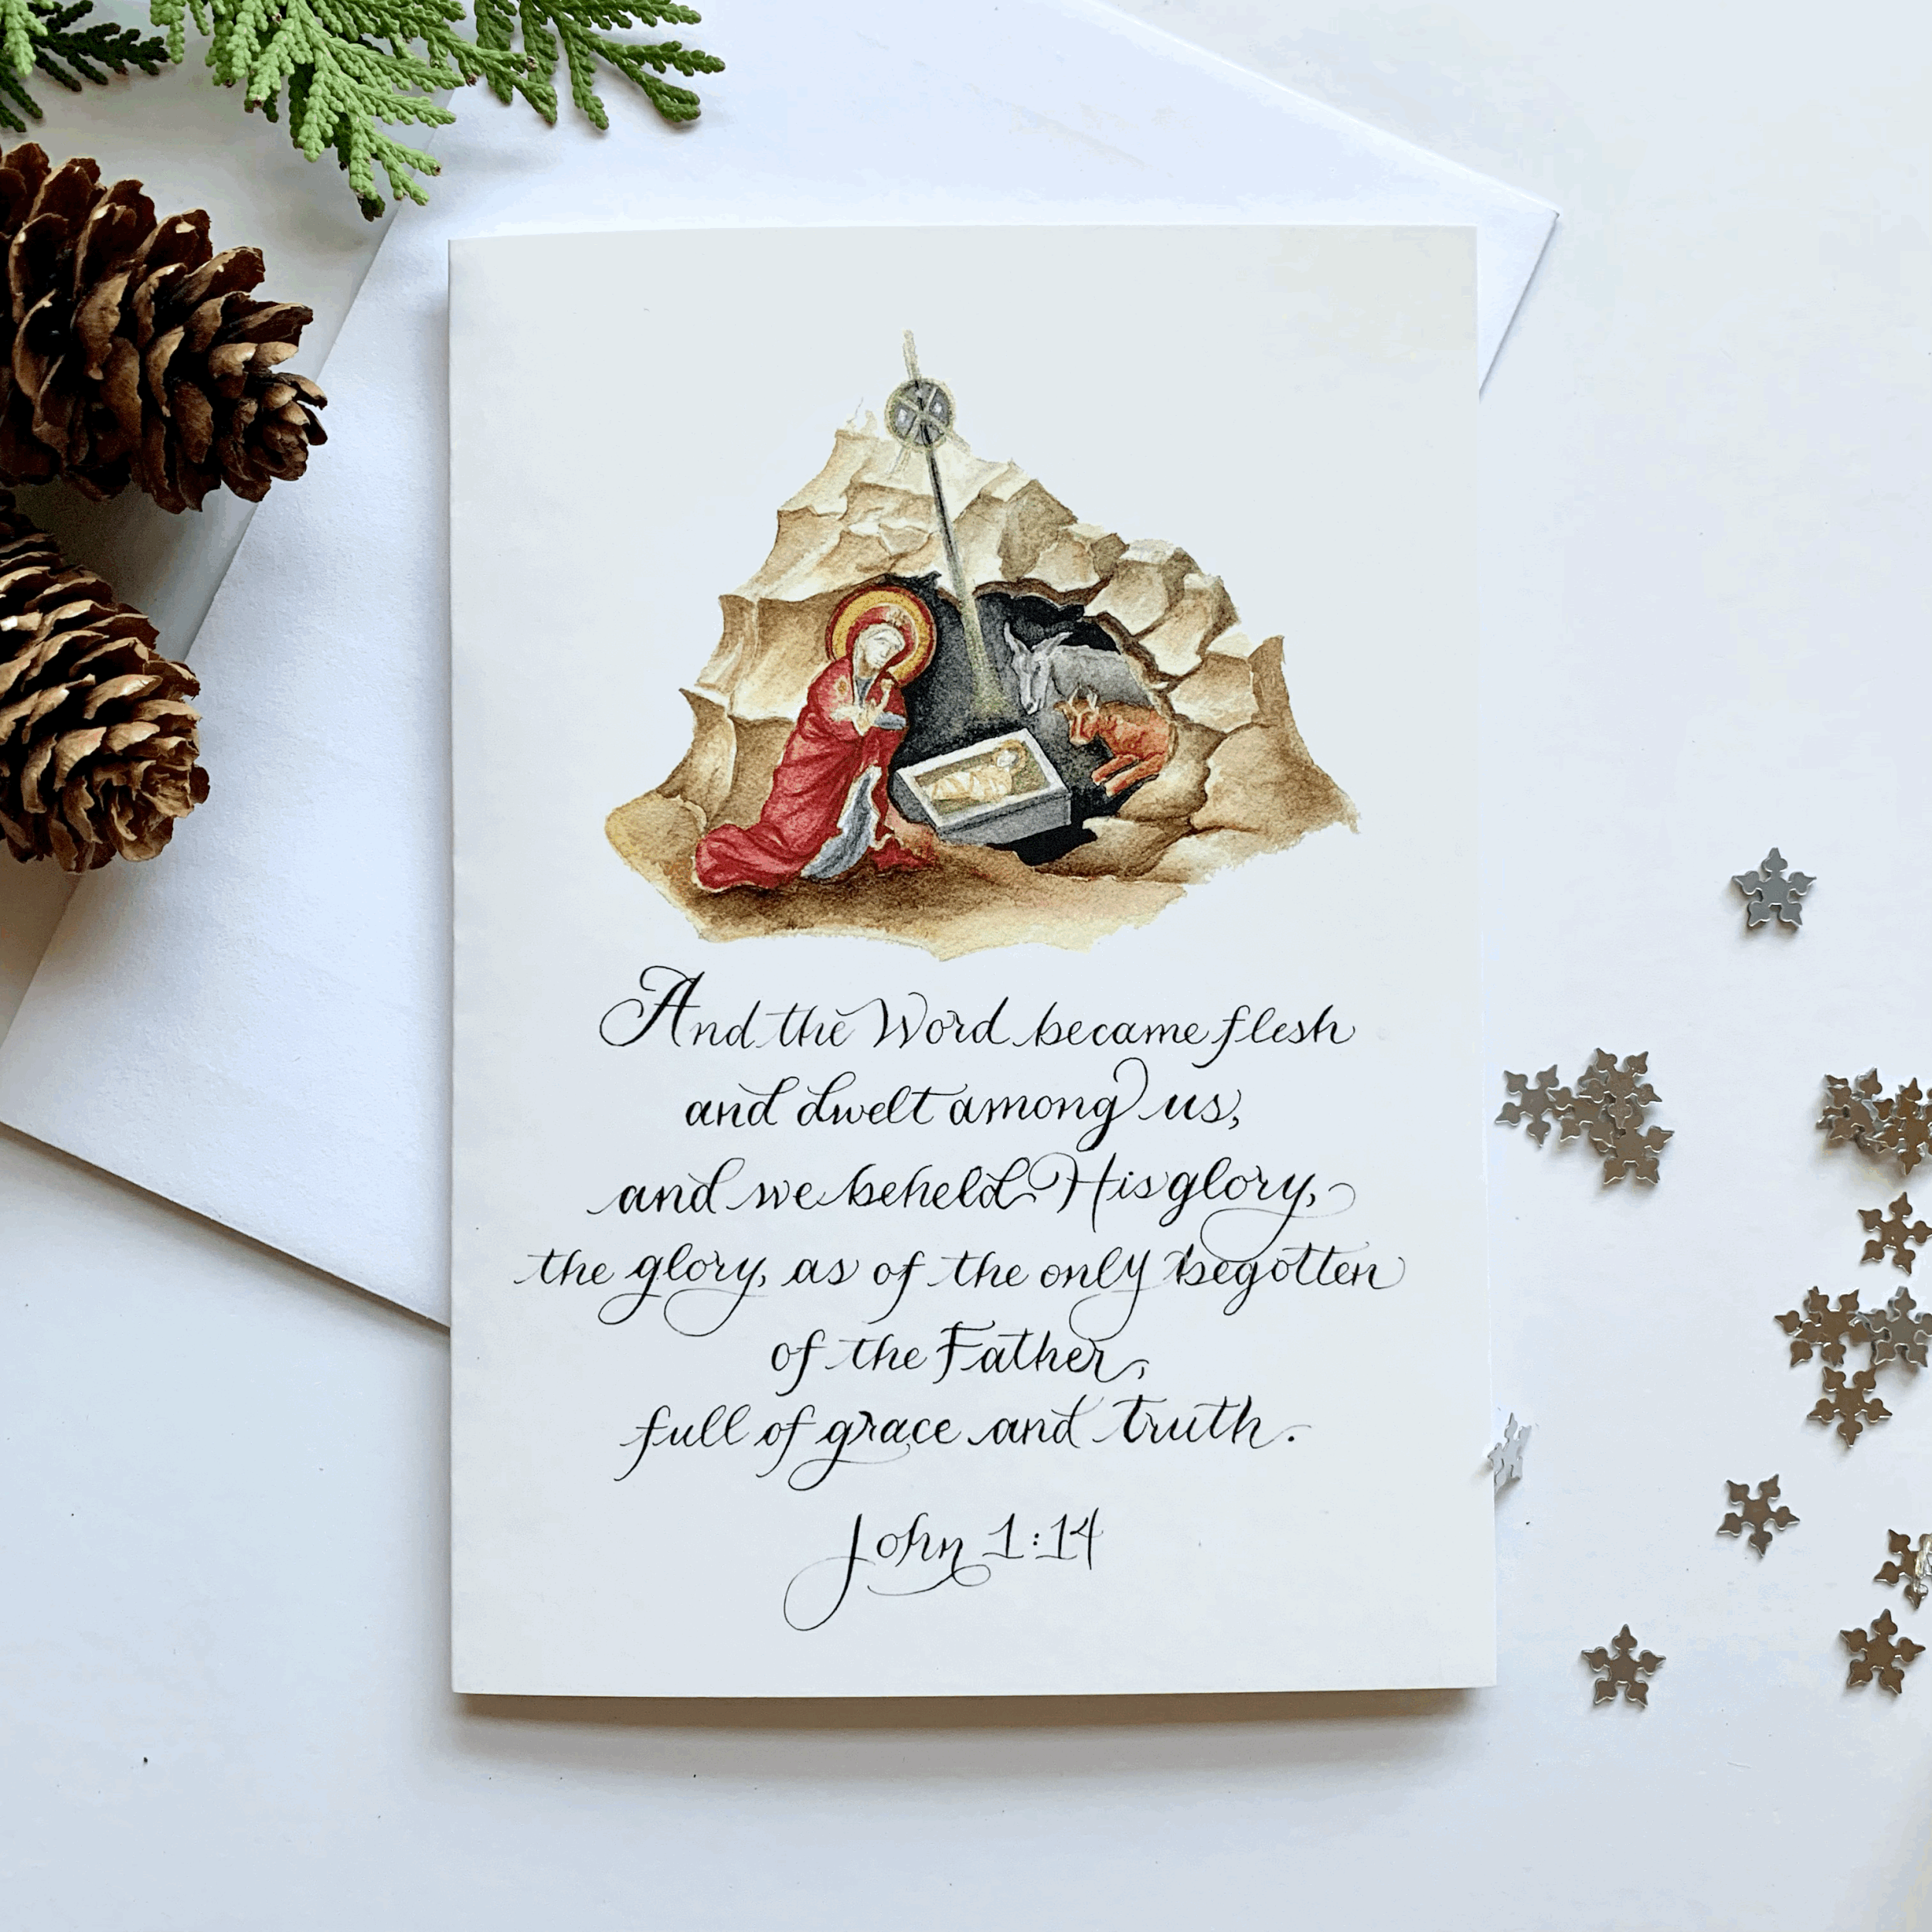 And the Word became flesh
and dwelt among us,
and we beheld His glory,
the glory, as of the only begotten
of the Father,
full of grace and truth.
John 1:14